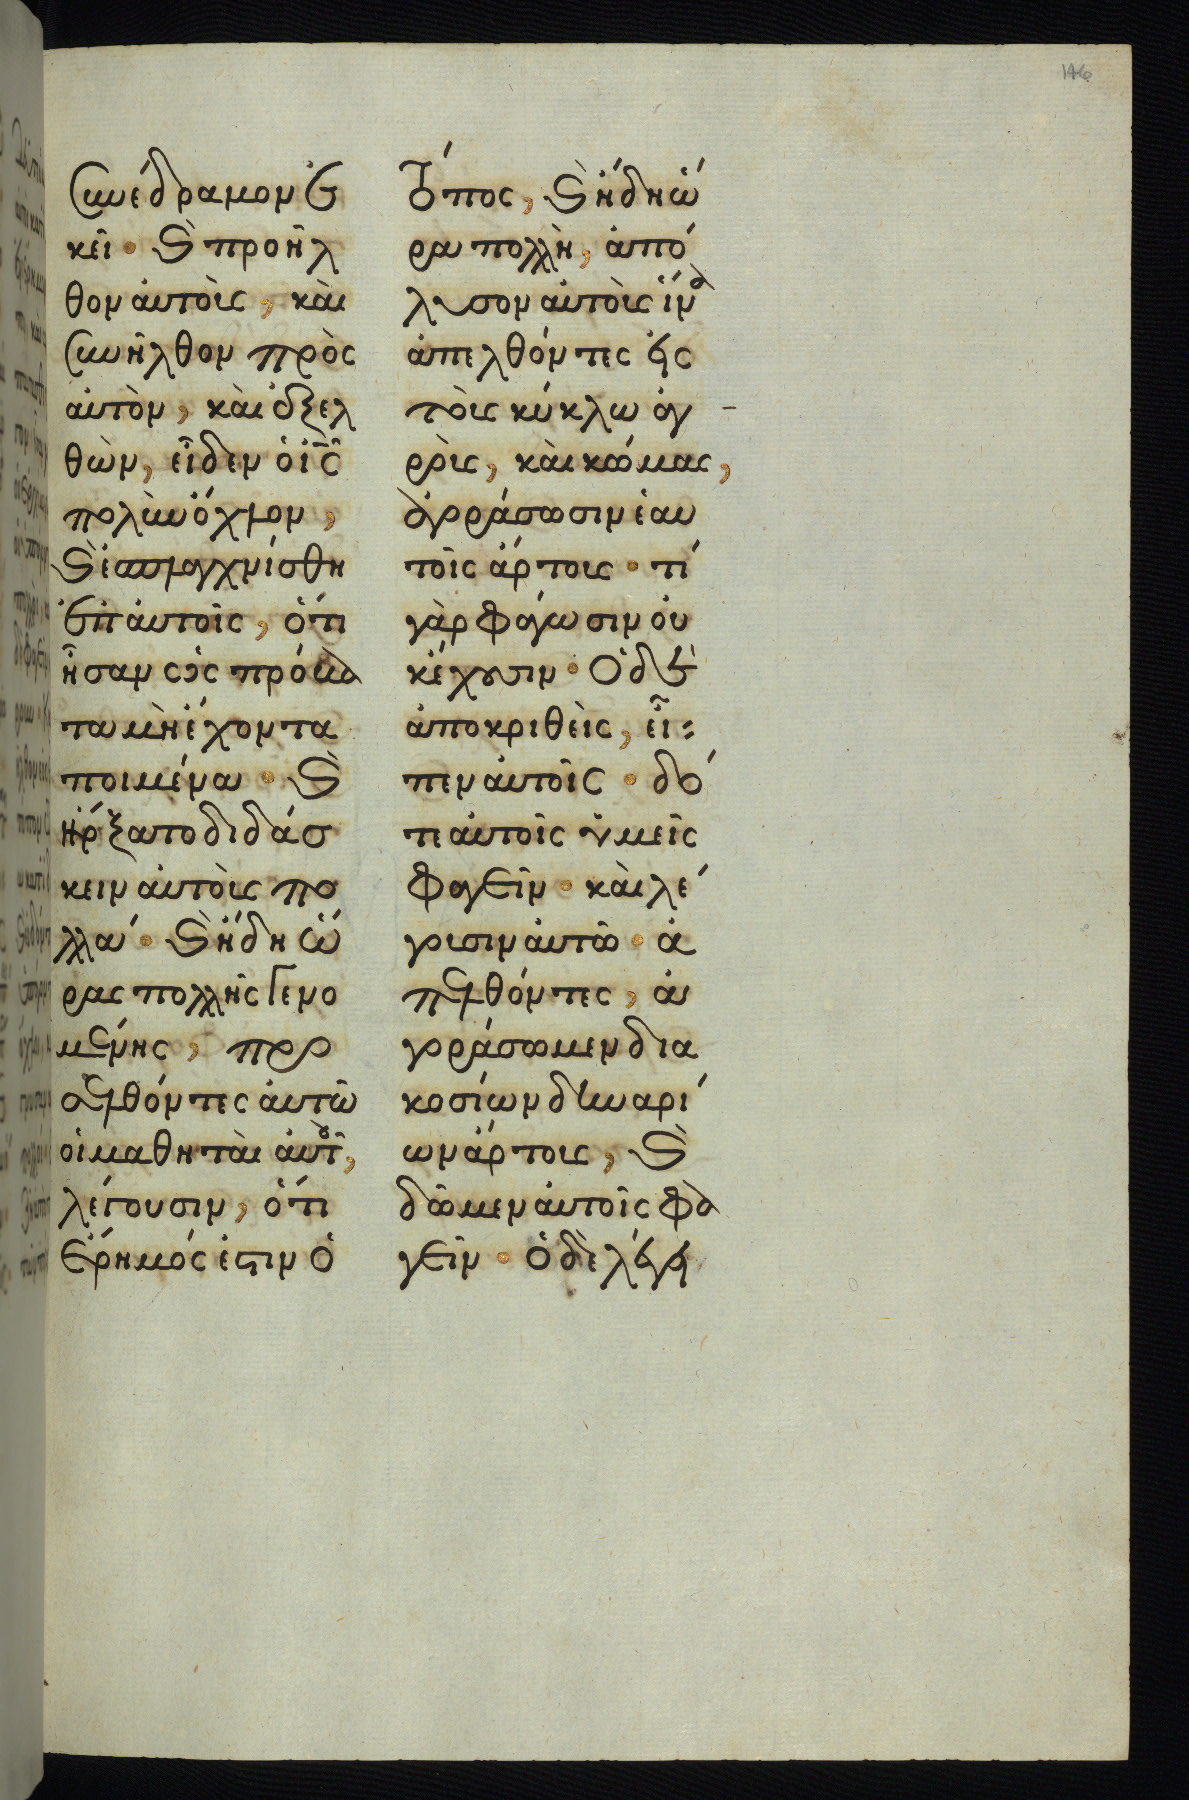 146
συνέδραμον ἐ
κεῖ. καὶ προῆλ
θον αὐτοὺς, καὶ
συνῆλθον πρὸς
αὐτὸν, καὶ ἐξελ
θὼν, εἶδεν ὁ ις
πολὺν ὄχλον,
καὶ ἐσπλαγχνίσθη
ἐπ αὐτοῖς, ὅτι
ἦσαν ὡς πρόβα
τα μὴ ἔχοντα
ποιμένα. καὶ
ἤρξατο διδάσ
κειν αὐτοὺς πο
λλά. καὶ ἤδη ὥ
ρας πολλῆς γενο
μένης, προ
σελθόντες αὐτῶ
οἱ μαθηταὶ αὐτοῦ,
λέγουσιν, ὅτι
ἔρημός ἐστιν ὁ
τόπος, καὶ ἤδη ὥ
ρα πολλὴ, ἀπό
λυσον αὐτοὺς ἵνα
ἀπελθόντες εἰς
τοὺς κύκλω ἀγ
ροὺς, καὶ κώμας,
ἀγοράσωσιν ἑαυ
τοῖς ἄρτους. τί
γὰρ φάγωσιν οὐ
κ ἔχουσιν. Ὁ δὲ
ἀποκριθεὶς, εἶ
πεν αὐτοῖς. δό
τε αὐτοῖς ὑμεῖς
φαγεῖν. καὶ λέ
γουσιν αὐτῶ. ἀ
πελθόντες, ἀ
γοράσωμεν δια
κοσίων δηναρί
ων ἄρτους, καὶ
δῶμεν αὐτοῖς φα
γεῖν. ὁ δὲ λέγει